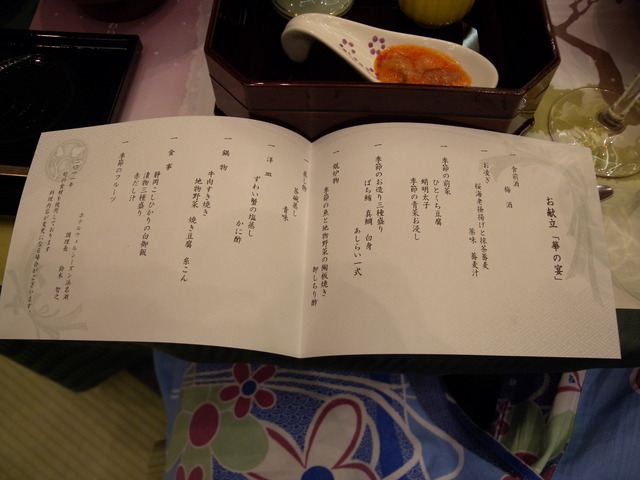 お献立「華の宴」
一 食前酒
梅酒
一 お凌ぎ
桜海老掻揚げと抹茶蕎麦
薬味 蕎麦汁
一 季節の前菜
ひとくち豆腐
蛸明太子
季節の青菜お浸し
一 季節のお造り三種盛り
ばち鮪 真鯛 白身
あしらい一式
一 焜炉物
季節の魚と地物野菜の陶板焼き
卸しちり酢
一 蒸し物
茶碗蒸し
青味
一 洋皿
ずわい蟹の塩蒸し
かに酢
一 鍋物
牛肉すき焼き
地物野菜 焼き豆腐 糸こん
一 食事
静岡こしひかりの白御飯
漬物三種盛り
赤だし汁
一 季節のフルーツ
ホテルウェルシーズン浜名湖
調理長 鈴木 智之